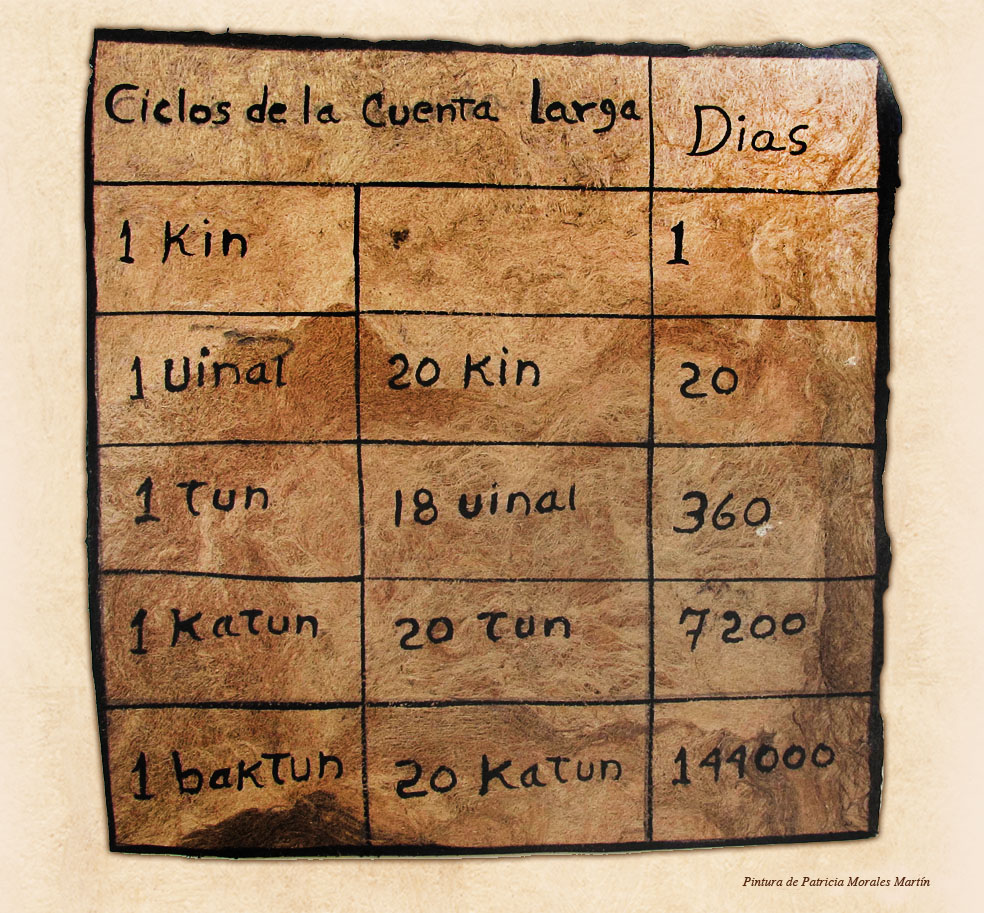 Ciclos de la Cuenta larga Dias
1 Kin 1
1 Uinal 20 Kin 20
1 Tun 18 uinal 360
1 Katun 20 Tun 7200
1 baktun 20 Katun 144000
Pintura de Patricia Morales Martín